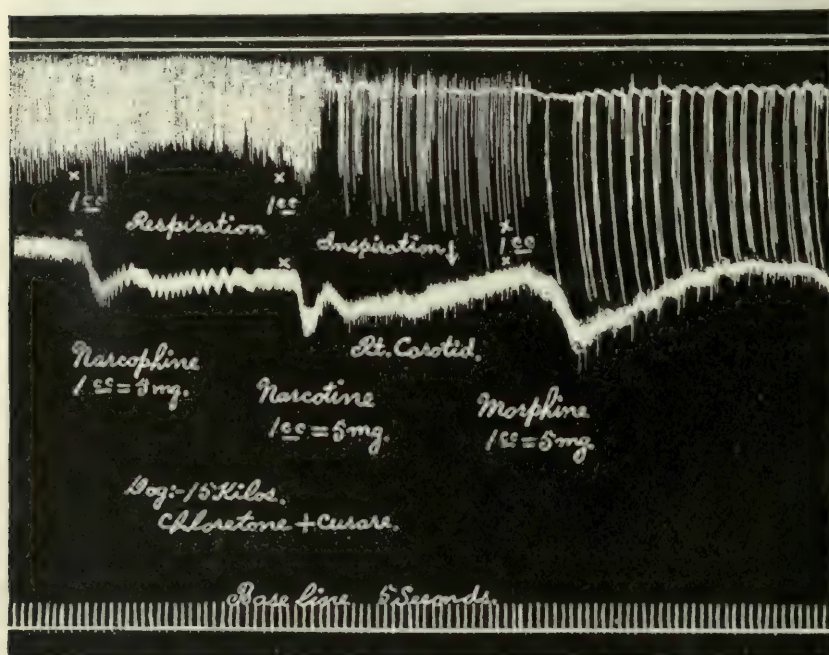 1 cc
1 cc
Respiration
Inspiration ↓
1 cc
Rt. Carotid.
Narcophine
1 cc = 3 mg.
Narcotine
1 cc = 5 mg.
Morphine
1 cc = 5 mg
Dog:- 15 Kilos.
Chloretone + Curare.
Base line 5 Seconds.